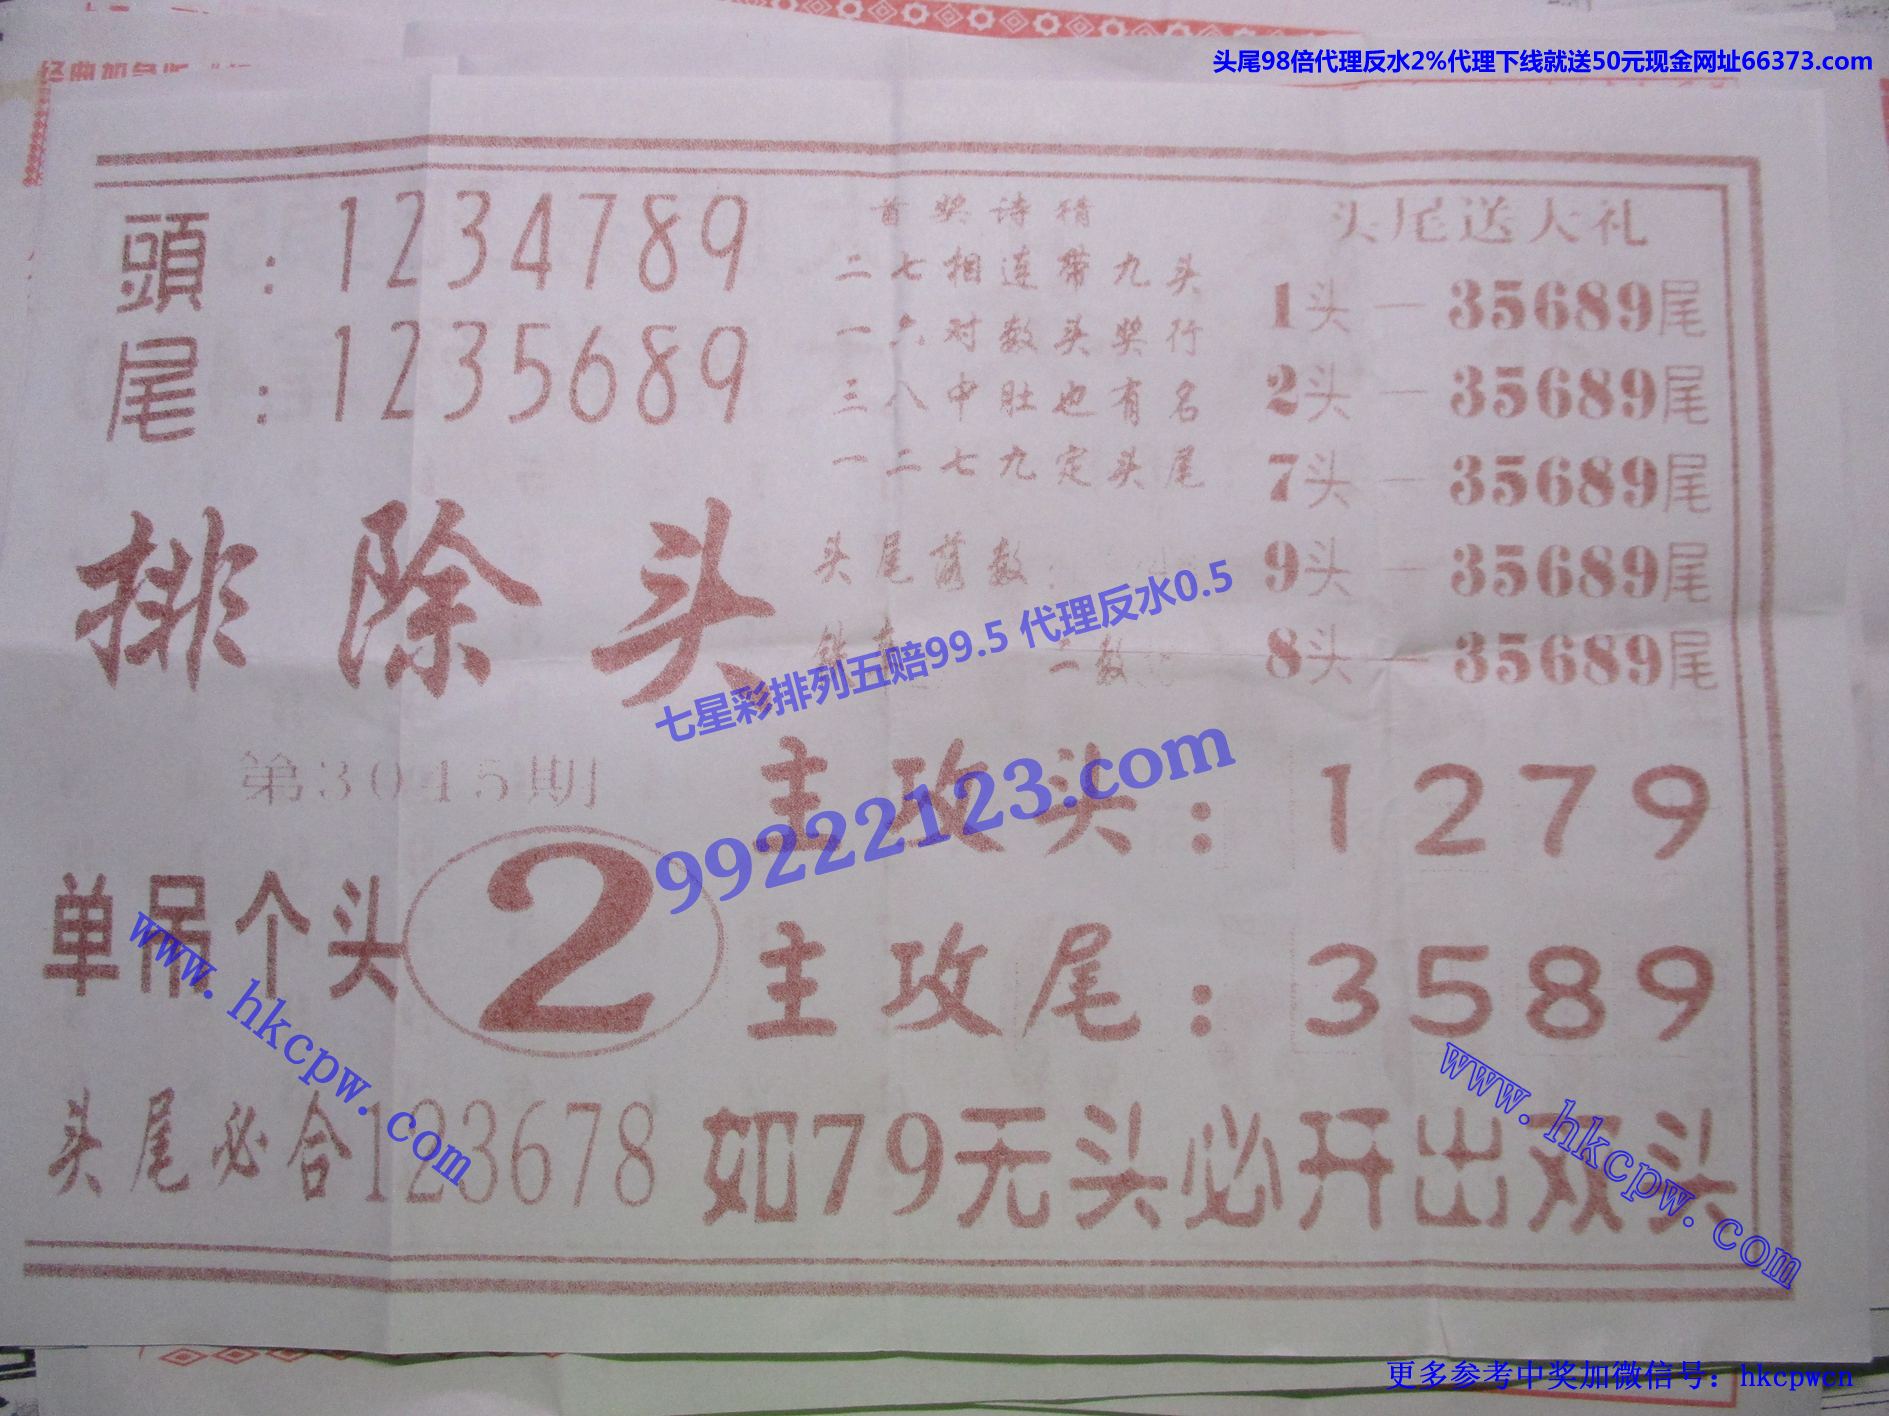 头尾98倍代理反水2%代理下线就送50元现金网址66373.com
頭：1234789
尾：1235689
排除头
首奖诗猜
二七相连带九头
一六对数头奖行
三八中肚也有名
一二七九定头尾
头尾
二数
头尾送大礼
1头—35689尾
2头—35689尾
7头—35689尾
9头—35689尾
8头—35689尾
七星彩排列五赔99.5 代理反水0.5
99222123.com
第3045期
单吊个头 2
主攻头：1279
主攻尾：3589
头尾必合123678
如79无头必开出双头
www.hkcpw.com
www.hkcpw.com
更多参考中奖加微信号：hkcpwcn